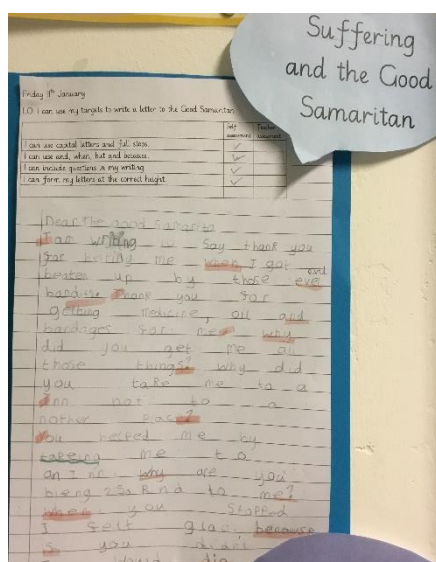 Suffering
and the Good
Samaritan
Friday 11th January
L.O. I can use my targets to write a letter to the Good Samaritan
Self assessment
Teacher assessment
I can use capital letters and full stops.
I can use and, when, but and because.
I can include questions in my writing.
I can form my letters at the correct height.
Dear the good Samarita
I am writing to say thank you
for helping me when I got
evil
beaten up by those evel
Thank you for
getting medicine, oil and
bandages for me. Why
did you get me all
those things? Why did
you take me to a
Inn not to a
nother place?
You helped me by
me to
an Inn. Why are you
bieng to me?
When you stopped
I felt glad because
if you didn't
I would die